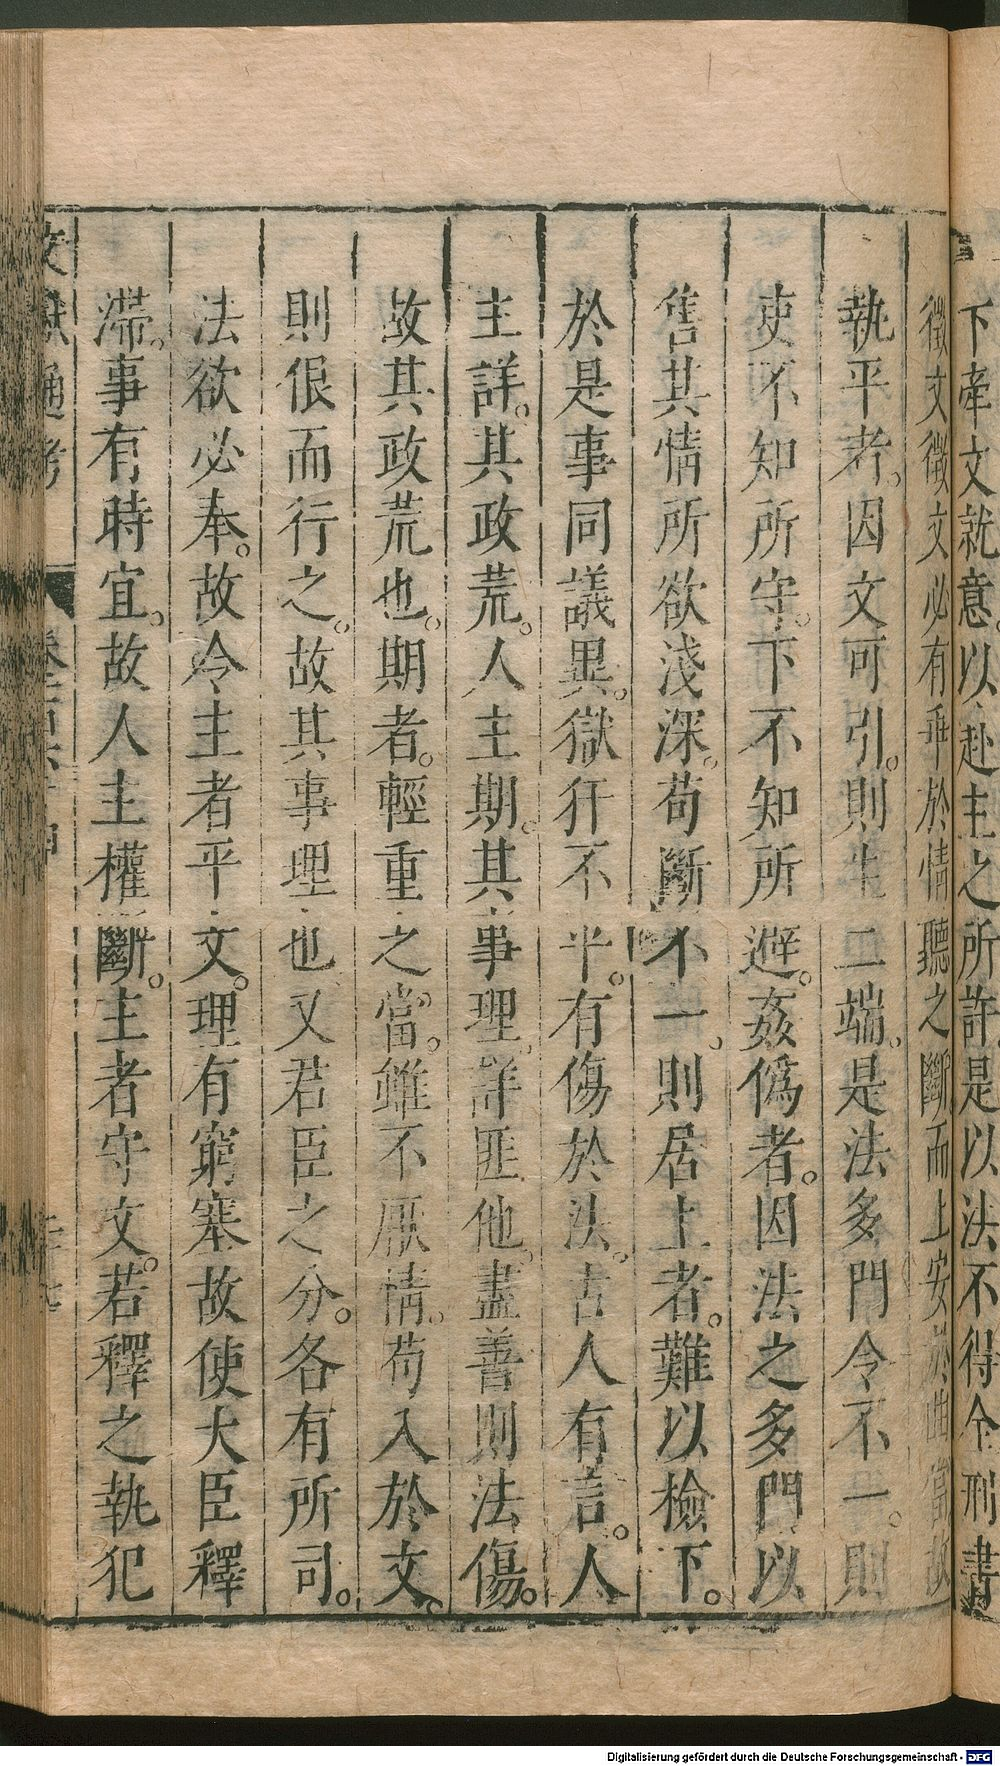 下牽文就意。以赴主之所許。是以法不得全刑書
徵文徵文必有乖於情聽之斷而上安於曲當故
執平者。因文可引。則生二端。是法多門令不一。則
吏不知所守。下不知所避。姦僞者。因法之多門以
售其情所欲淺深。苟斷不一。則居上者。難以檢下。
於是事同議異。獄犴不平。有傷於法。古人有言。人
主詳。其政荒。人主期。其事理。詳匪他。盡善則法傷。
故其政荒也。期者。輕重之當。雖不厭情。苟入於文。
則佷而行之。故其事理也又君臣之分。各有所司。
法欲必奉。故令主者平文。理有窮塞故使大臣釋
滯。事有時宜。故人主權斷。主者守文。若釋之執犯
文獻通考
Digitalisierung gefördert durch die Deutsche Forschungsgemeinschaft - DFG